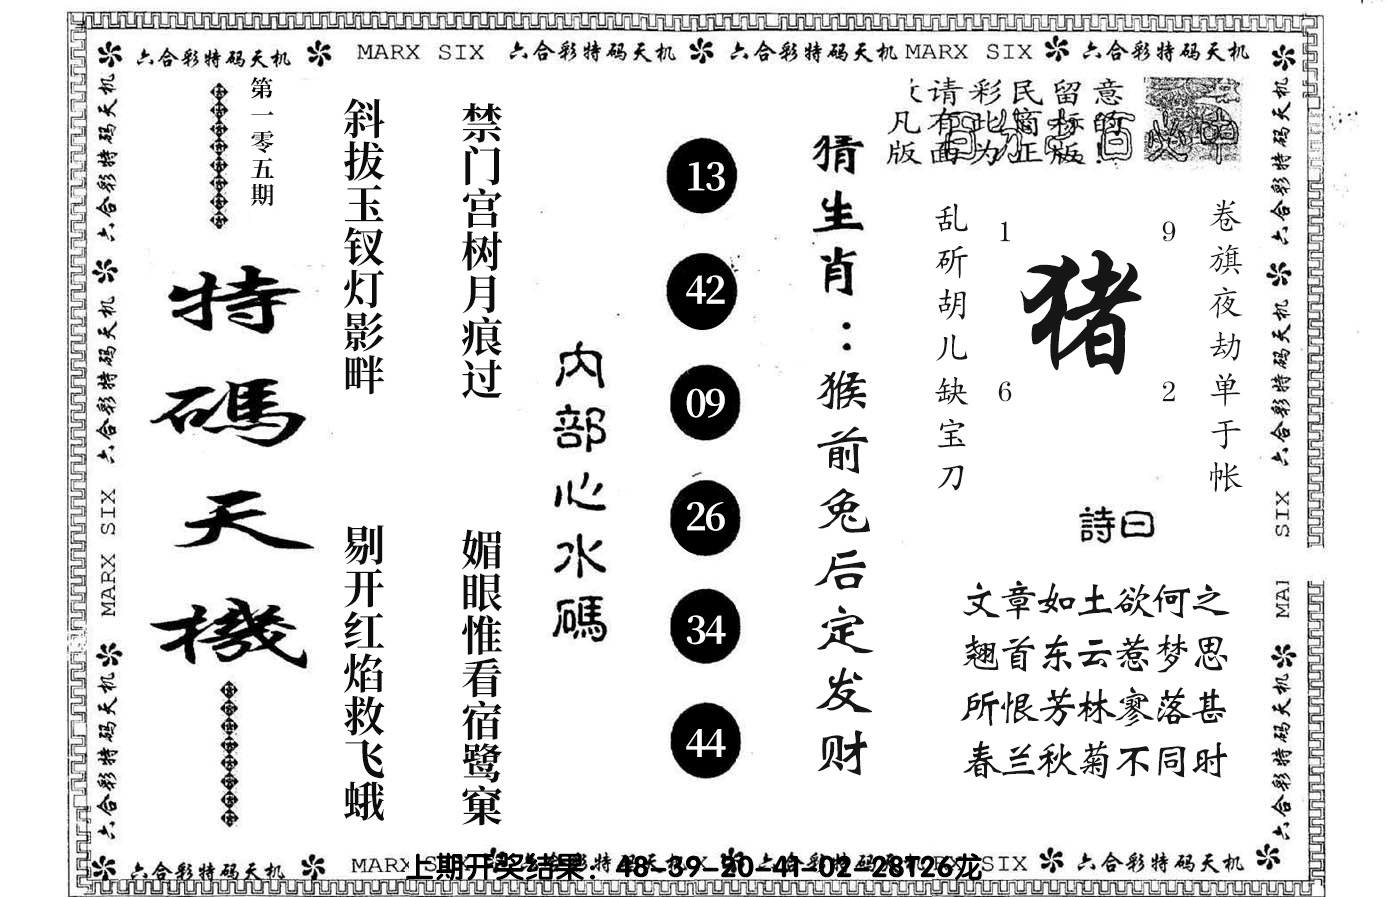 六合彩特码天机 MARX SIX 六合彩特码天机 六合彩特码天机 MARX SIX 六合彩特码天机
六合彩特码天机
六合彩特码天机
MARX SIX
六合彩特码天机
第一零五期
特碼天機
斜拔玉钗灯影畔
剔开红焰救飞蛾
禁门宫树月痕过
媚眼惟看宿鹭窠
内部心水碼
13
42
09
26
34
44
猜生肖：猴前兔后定发财
请彩民留意
凡有此商标的
版面为正版!
乱斫胡儿缺宝刀
1
9
猪
6
2
卷旗夜劫单于帐
詩曰
文章如土欲何之
翘首东云惹梦思
所恨芳林寥落甚
春兰秋菊不同时
六合彩特码天机
六合彩特码天机
SIX
MAI
六合彩特码天机
六合彩特码天机 MARX SIX
SIX 六合彩特码天机
上期开奖结果：48-39-20-41-02-28T26龙